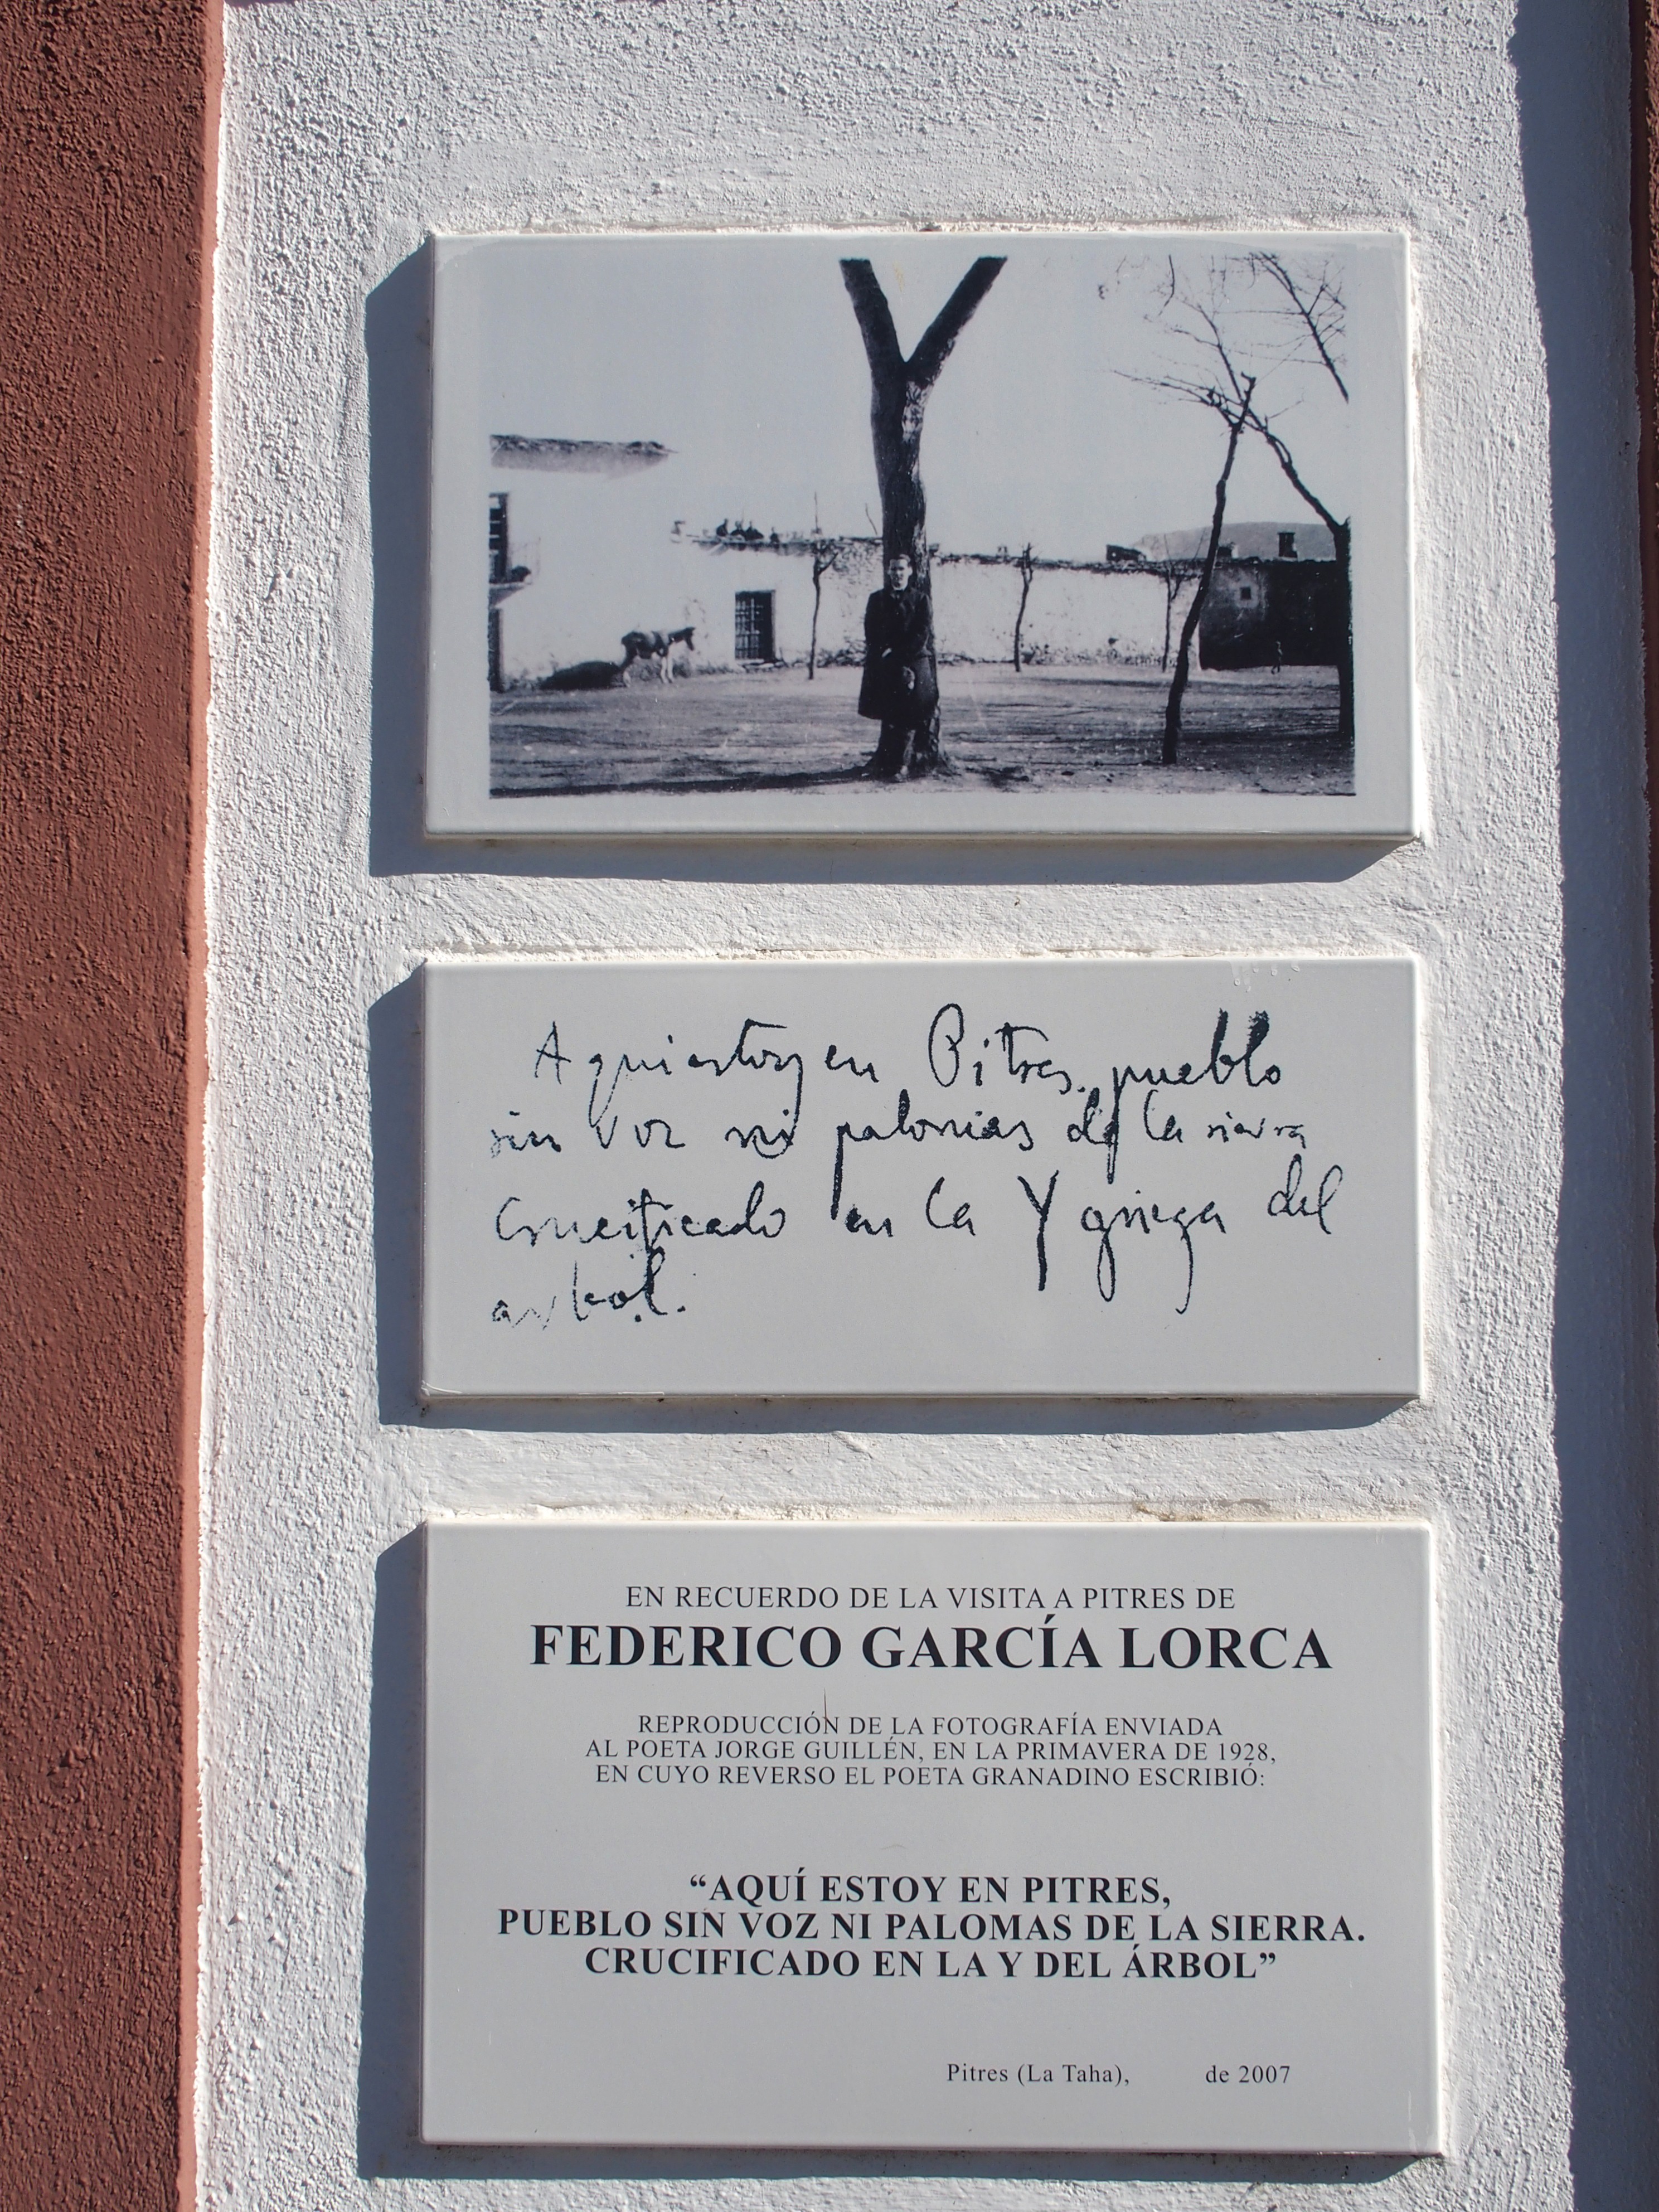 Aqui estoy en Pitres, pueblo
sin voz ni palomas de la sierra
Crucificado en la Y griega del
arbol.
EN RECUERDO DE LA VISITA A PITRES DE
FEDERICO GARCÍA LORCA
REPRODUCCIÓN DE LA FOTOGRAFÍA ENVIADA
AL POETA JORGE GUILLÉN, EN LA PRIMAVERA DE 1928,
EN CUYO REVERSO EL POETA GRANADINO ESCRIBIÓ:
“AQUÍ ESTOY EN PITRES,
PUEBLO SIN VOZ NI PALOMAS DE LA SIERRA.
CRUCIFICADO EN LA Y DEL ÁRBOL”
Pitres (La Taha), de 2007